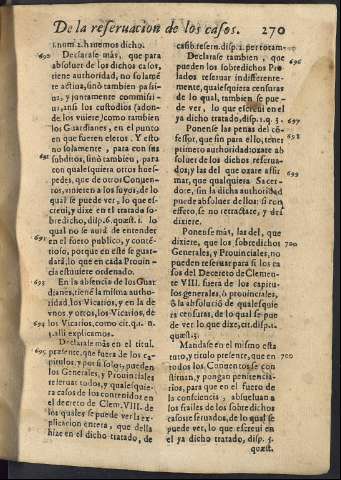 De la reseruacion de los casos. 270
1. num. 2. hauemos dicho.
690 Declarase mas, que para
absoluer de los dichos casos,
tiene authoridad, no solamẽ
te actiua, sinò tambien passi-
ua, y juntamente commissi-
ua, ansi los custodios (adon-
de los vuiere) como tambien
los Guardianes, en el punto
en que fueren electos. Y esto
no solamente, para con sus
691 subditos, sinò tambien, para
con qualesquiera otros hues-
pedes, que de otros Conuen-
tos, vinieren a los suyos, de lo
qual se puede ver, lo que es-
creui, y dixe en el tratado so-
bredicho, disp. 6. quæst. 1. lo
qual no se aurà de entender
692 en el fuero publico, y contẽ-
tioso, porque en este se guar-
darà, lo que en cada Prouin-
cia estuuiere ordenado.
693 En la absencia de los Guar
dianes, tiene la misma autho-
ridad, los Vicarios, y en la de
vnos y otros, los Vicarios, de
694 los Vicarios, como cit. q. 1. n.
3. alli explicamos.
Declarase mas en el titul.
695 presente, que fuera de los ca-
pitulos, y por si solos, pueden
los Generales, y Prouinciales
reseruar todos, y qualesquie-
ra casos de los contenidos en
el decreto de Clem. VIII. de
los quales se puede ver la ex-
plicacion entera, que della
hize en el dicho tratado, de
casib. reseru. disp. 2. per totam.
Declarase tambien, que 696
pueden los sobredichos Pre-
lados reseruar indifferente-
mente, qualesquiera censuras
de lo qual, tambien se pue-
de ver, lo que escreui en el
ya dicho tratado, disp. 1. q. 3. 697
Ponense las penas del cõ-
fessor, que sin para ello, tener 698
primero authoridad: oxare ab
soluer de los dichos reserua-
dos, y las del que oxare affir-
mar, que qualquiera Sacer-
dore, sin la dicha authoridad
puede absoluer dellos: si con
effeto, se no retractare, y des
dixere.
Ponense mas, las del, que
dixiere, que los sobredichos 700
Generales, y Prouinciales, no
pueden reseruar para si los ca
sos del Decereto de Clemen-
te VIII. fuera de los capitu-
los generales, ò prouinciales,
ò la absolució de qualesquie
ra censuras, de lo qual se pue
de ver lo que dixe, cit. disp. 1.
quæst. 3.
Mandase en el mismo esta
tuto, y titulo presente, que en 700
todos los Conuentos se con
stituan, y pongan penitencia-
rios, para que en el fuero de
la consciencia, absueluan a
los frailes de los sobre dichos
casos reseruados, de lo qual se
puede ver, lo que escreui en
el ya dicho tratado, disp. 3.
quæst.